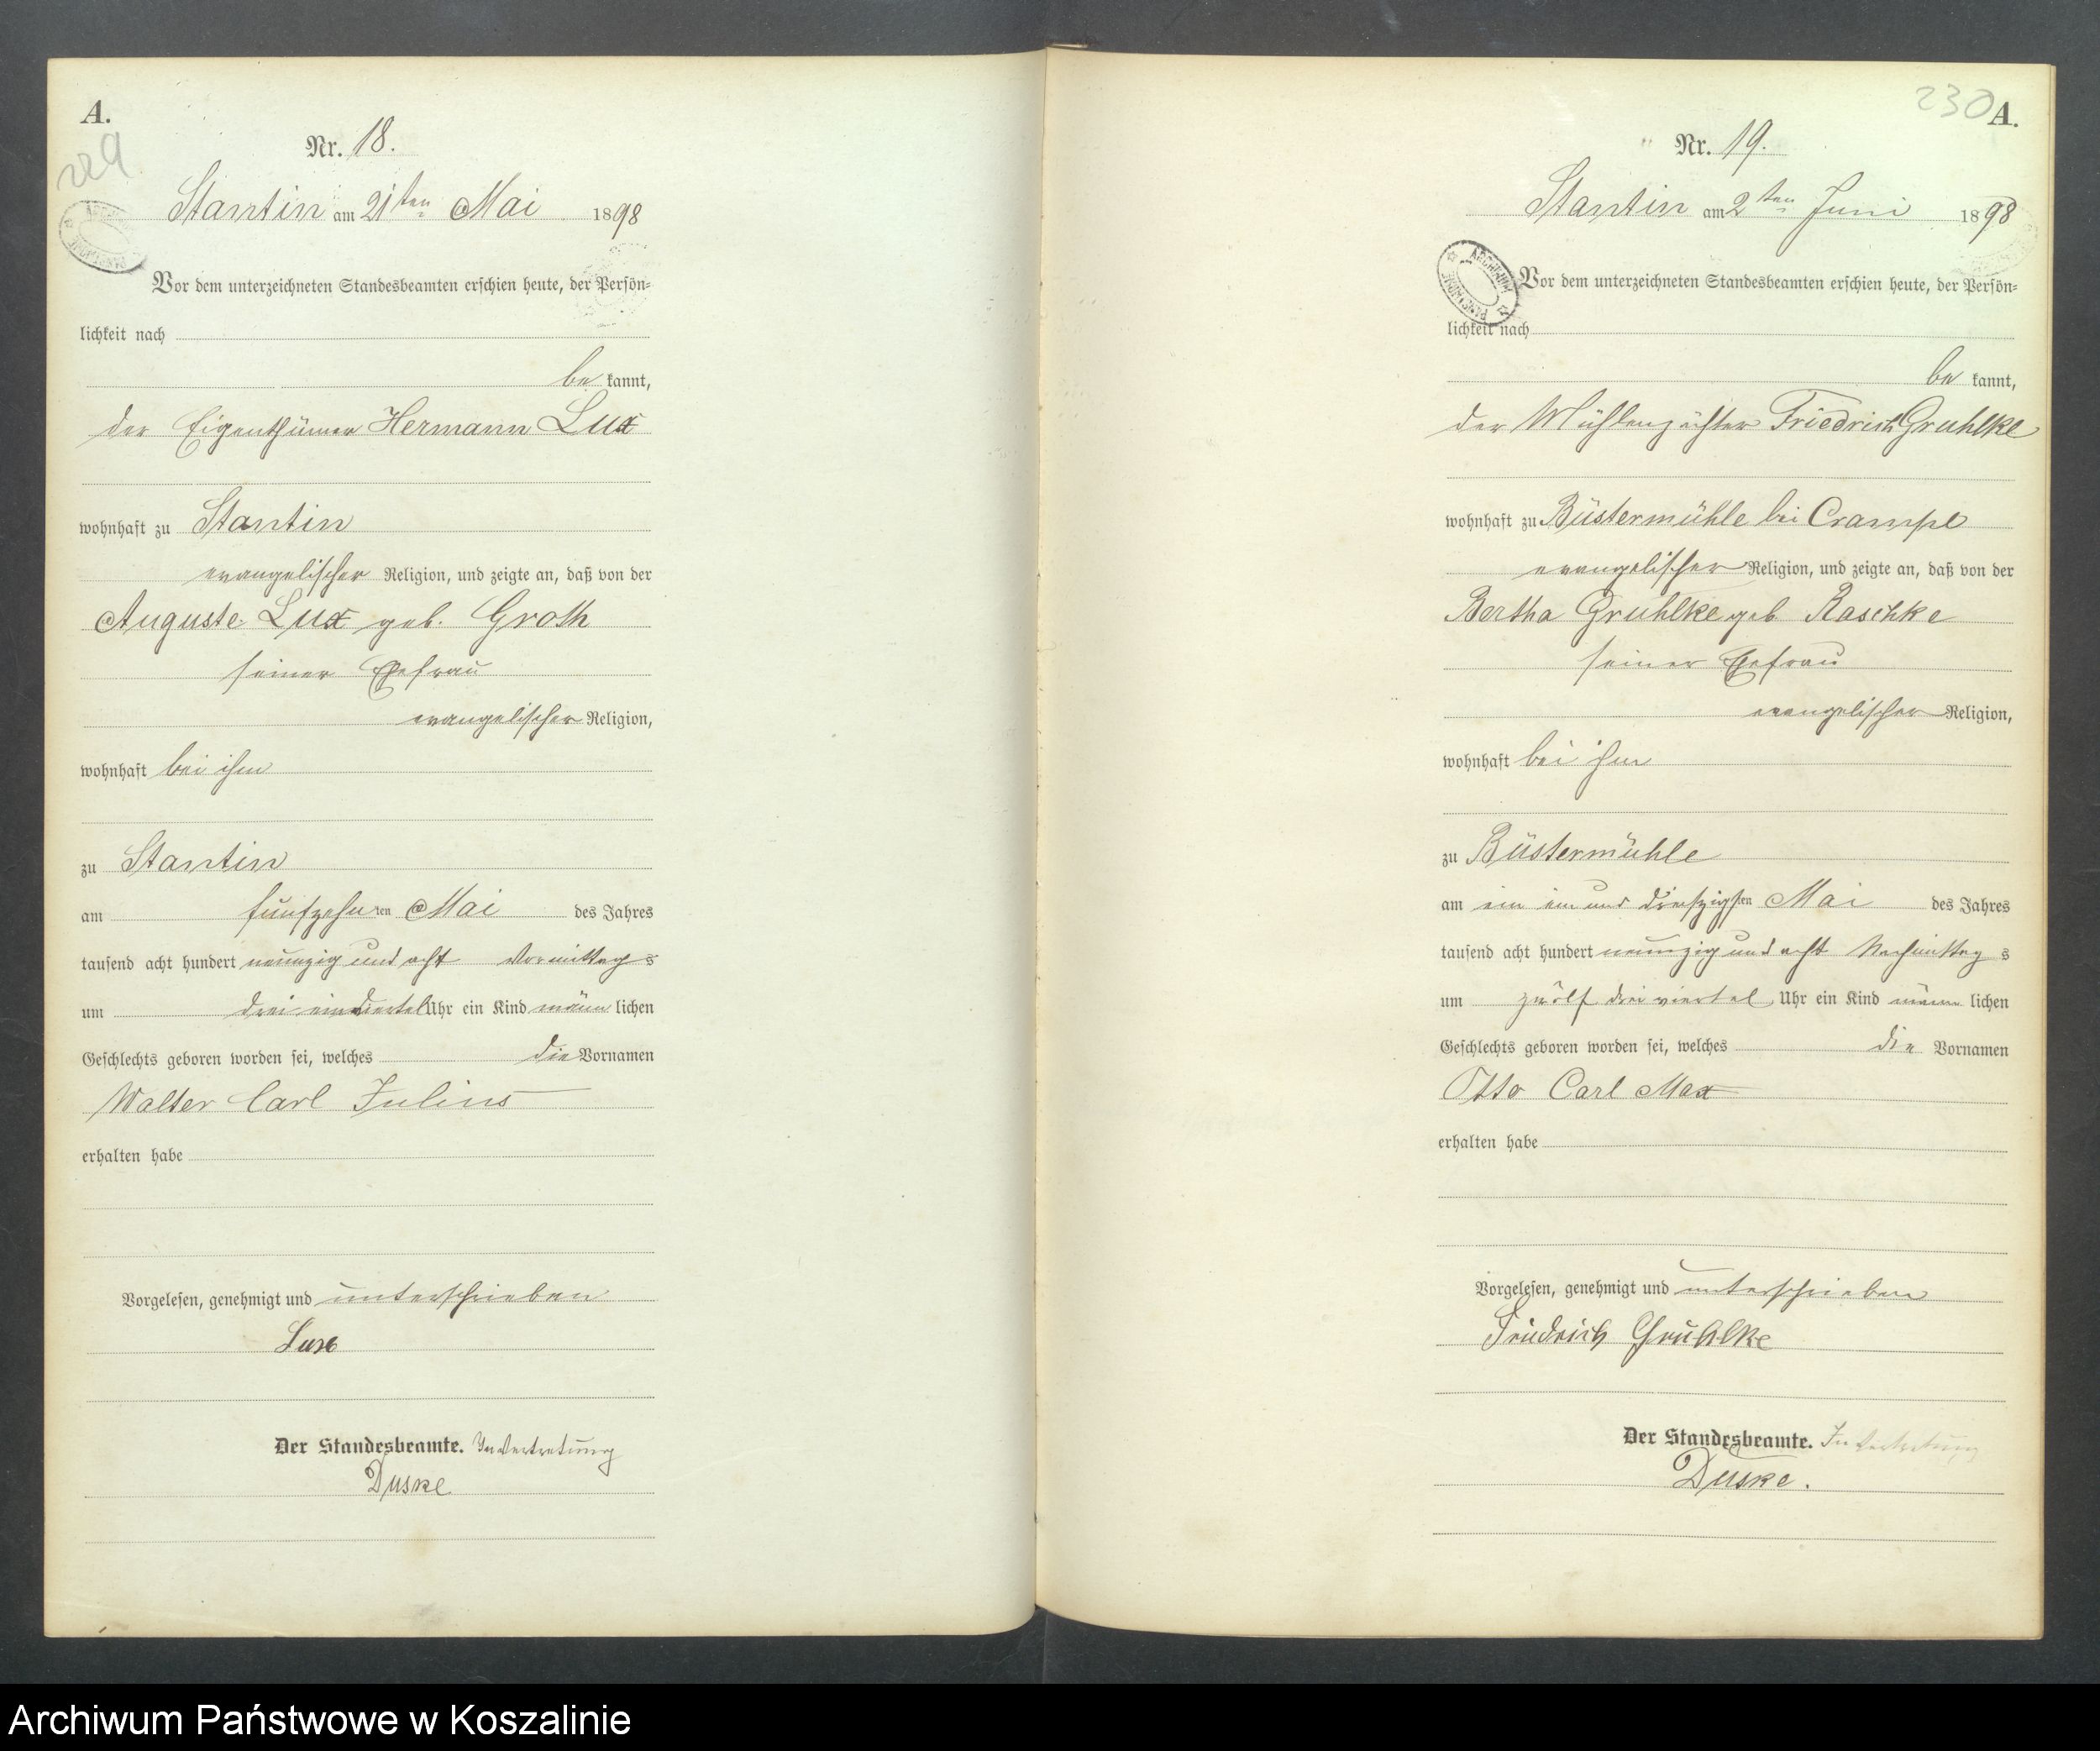 A.
229
Nr. 18.
Stantin am 21ten Mai 1898
Vor dem unterzeichneten Standesbeamten erschien heute, der Persön-
lichkeit nach
be kannt,
der Eigenthümer Hermann Lux
wohnhaft zu Stantin
evangelischer Religion, und zeigte an, daß von der
Auguste Lux geb. Groth
seiner Ehefrau
evangelischer Religion,
wohnhaft bei ihm
zu Stantin
am fünfzehnten Mai des Jahres
tausend acht hundert neunzig und acht Vormittags
um drei einviertel Uhr ein Kind männlichen
Geschlechts geboren worden sei, welches die Vornamen
Walter Carl Julius
erhalten habe
Vorgelesen, genehmigt und unterschrieben
Lux
Der Standesbeamte. In Vertretung
Duske
230 A.
Nr. 19.
Stantin am 2ten Juni 1898
ARCHIWUM PAŃSTWOWE
Vor dem unterzeichneten Standesbeamten erschien heute, der Persön-
lichkeit nach
be kannt,
der Mühlenpächter Friedrich Gruhlke
wohnhaft zu Büstermühle bei Crampe
evangelischer Religion, und zeigte an, daß von der
Bertha Gruhlke geb Raschke
seiner Ehefrau
evangelischer Religion,
wohnhaft bei ihm
zu Büstermühle
am ein ein und dreißigsten Mai des Jahres
tausend acht hundert neunzig und acht Nachmittags
um zwölf drei viertel Uhr ein Kind männlichen
Geschlechts geboren worden sei, welches die Vornamen
Otto Carl Max
erhalten habe
Vorgelesen, genehmigt und unterschrieben
Friedrich Gruhlke
Der Standesbeamte. In Vertretung
Duske.
Archiwum Państwowe w Koszalinie